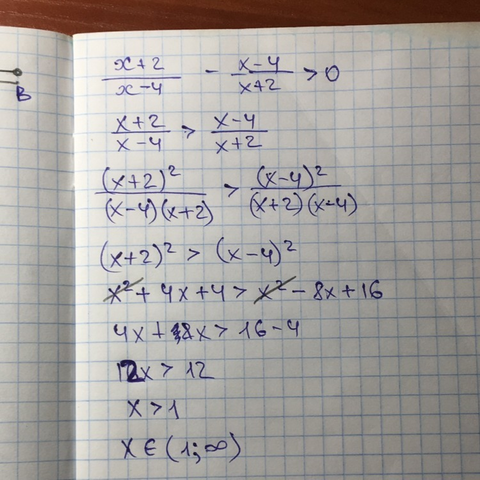 B
(x+2)/(x-4) - (x-4)/(x+2) > 0
(x+2)/(x-4) > (x-4)/(x+2)
(x+2)²/((x-4)(x+2)) > (x-4)²/((x+2)(x-4))
(x+2)² > (x-4)²
x² + 4x+4 > x² - 8x+16
4x + 8x > 16-4
12x > 12
x > 1
x ∈ (1; ∞)